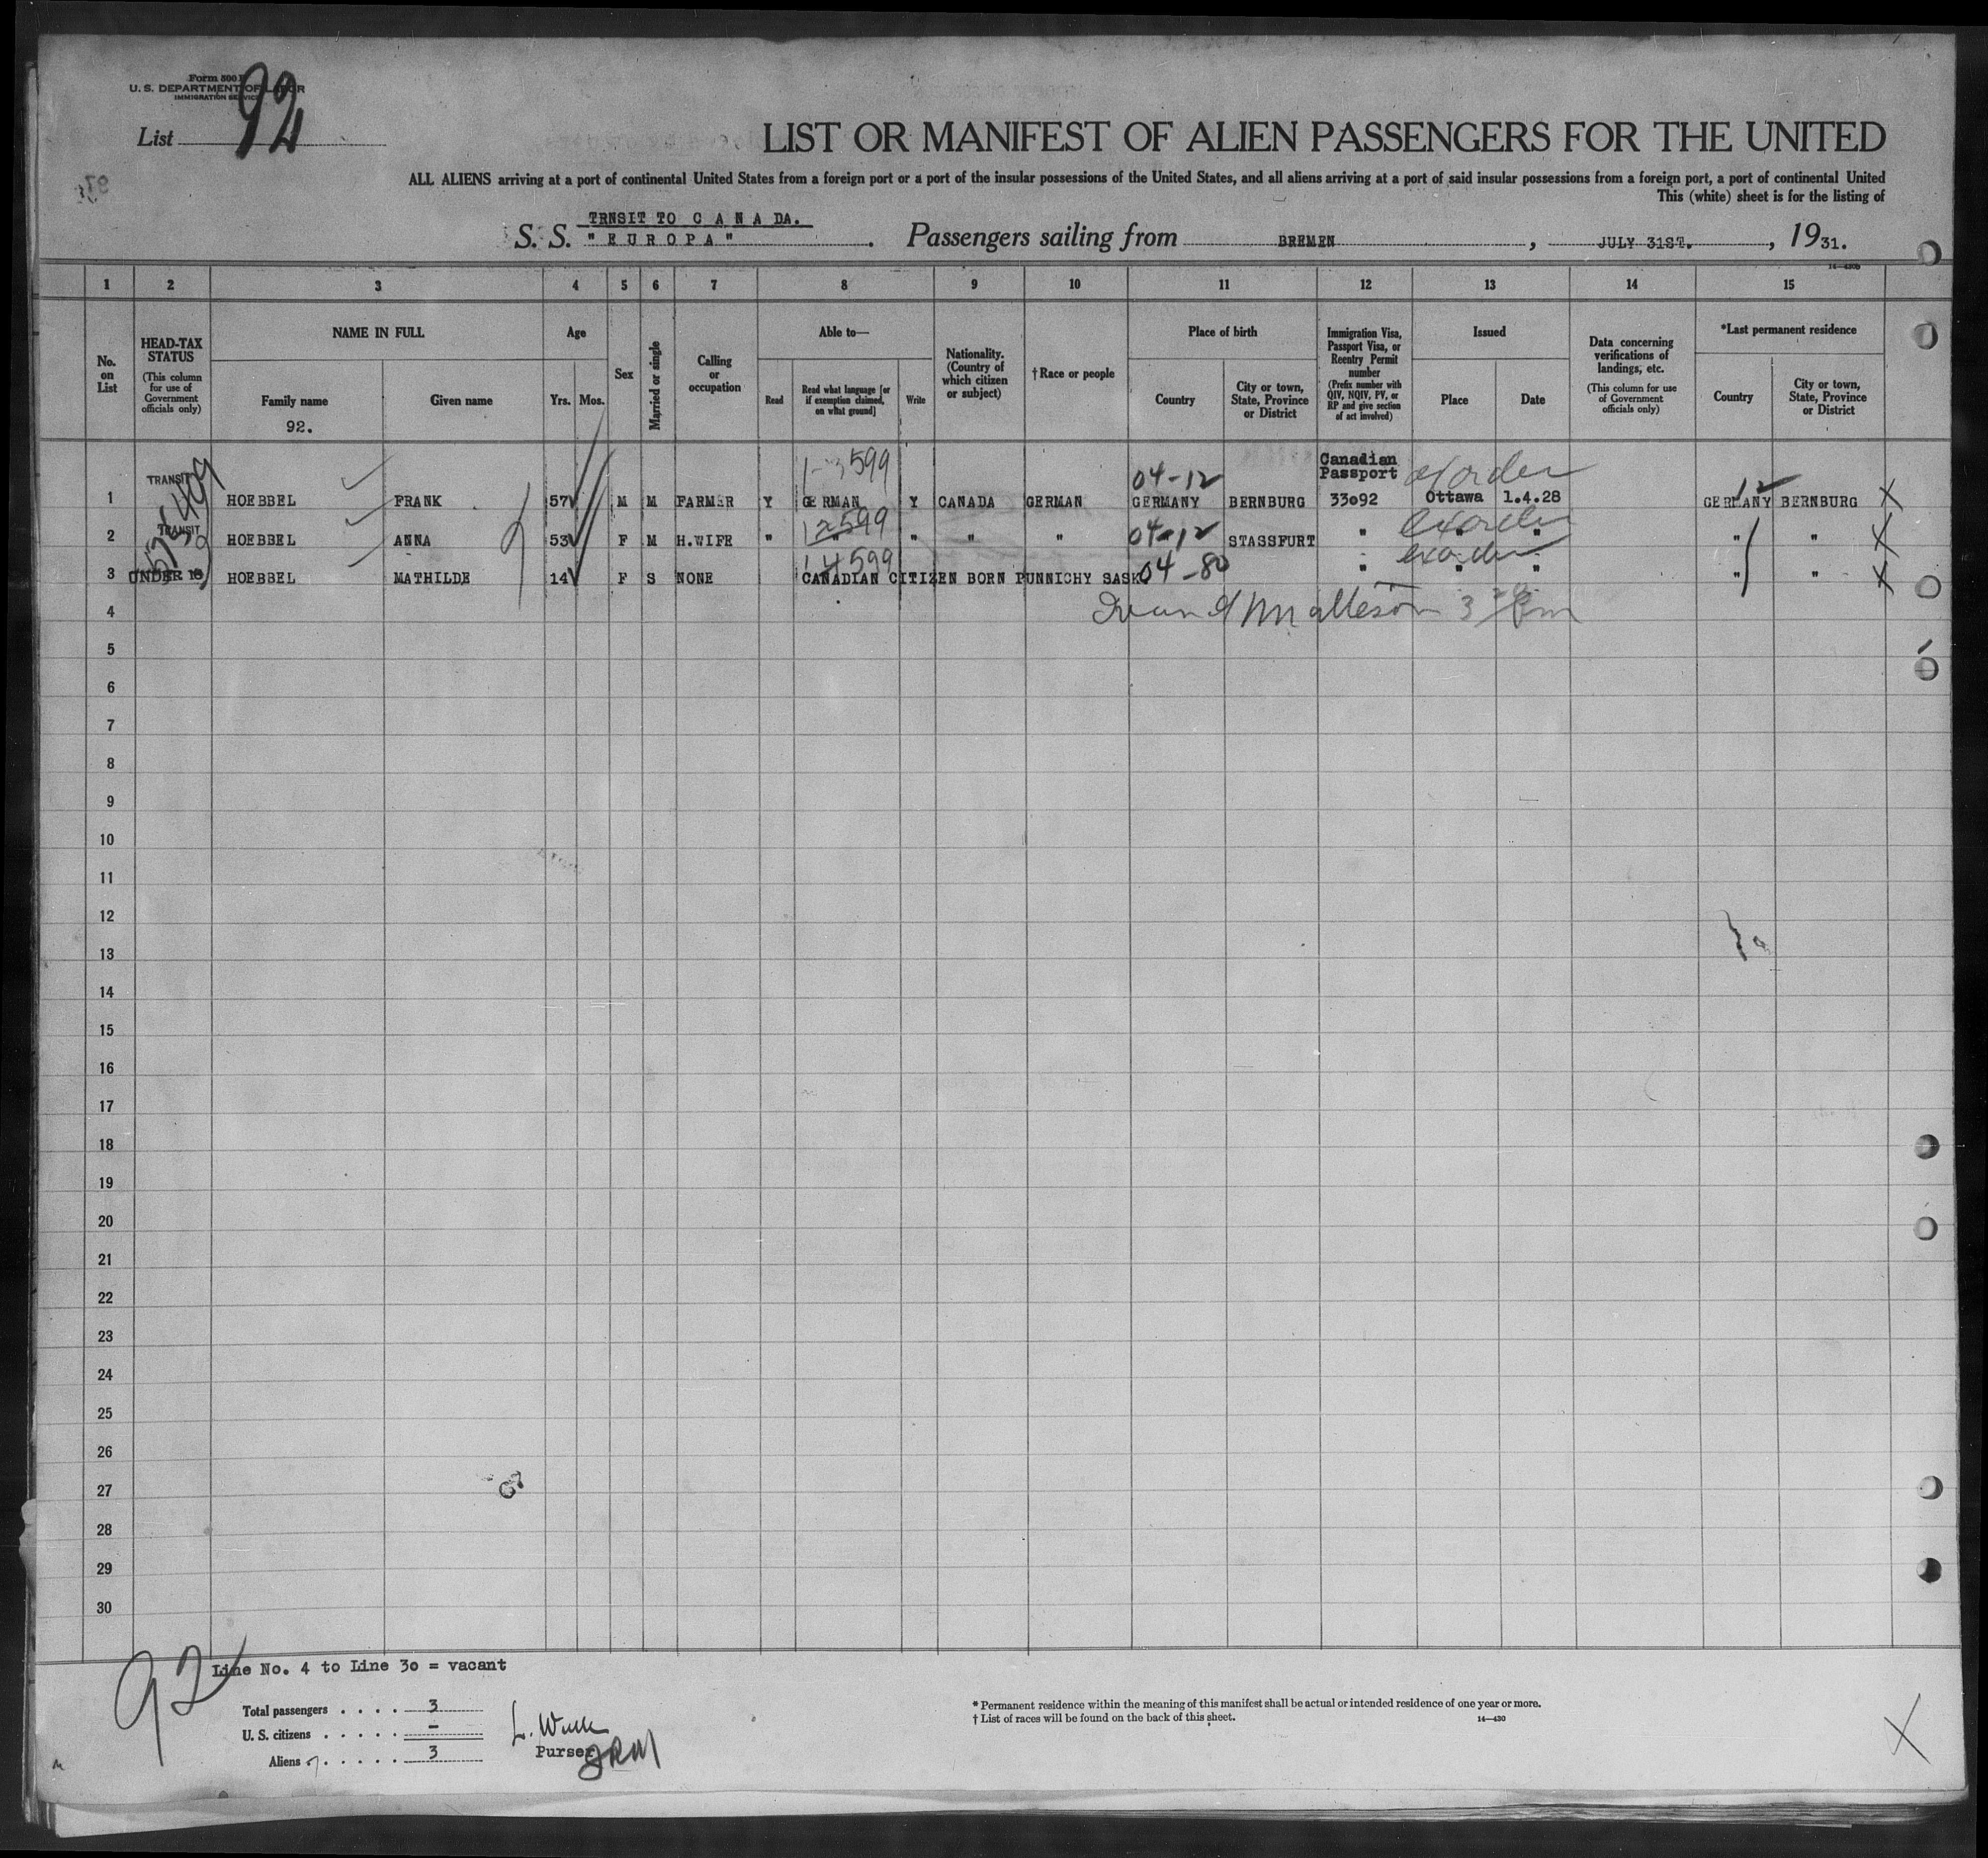 Form 500
U. S. DEPARTMENT OF LABOR
IMMIGRATION SERVICE
List 92
LIST OR MANIFEST OF ALIEN PASSENGERS FOR THE UNITED
ALL ALIENS arriving at a port of continental United States from a foreign port or a port of the insular possessions of the United States, and all aliens arriving at a port of said insular possessions from a foreign port, a port of continental United
This (white) sheet is for the listing of
TRNSIT TO C A N A DA.
S. S. "E U R O P A". Passengers sailing from BREMEN, JULY 31ST., 1931.
14—430b
1 2 3 4 5 6 7 8 9 10 11 12 13 14 15
No. on List
HEAD-TAX STATUS (This column for use of Government officials only)
NAME IN FULL
Family name Given name
92.
Age
Yrs. Mos.
Sex
Married or single
Calling or occupation
Able to—
Read
Read what language [or if exemption claimed, on what ground]
Write
Nationality. (Country of which citizen or subject)
†Race or people
Place of birth
Country
City or town, State, Province or District
Immigration Visa, Passport Visa, or Reentry Permit number (Prefix number with QIV, NQIV, PV, or RP and give section of act involved)
Issued
Place Date
Data concerning verifications of landings, etc. (This column for use of Government officials only)
*Last permanent residence
Country
City or town, State, Province or District
599 04-12 Canadian Passport
1 TRANSIT HOEBBEL FRANK 57 M M FARMER Y GERMAN Y CANADA GERMAN GERMANY BERNBURG 33092 Ottawa 1.4.28 GERMANY 12 BERNBURG X
599 04-12
2 TRANSIT HOEBBEL ANNA 53 F M H.WIFE " " " " " STASSFURT " " " " " X
599
3 UNDER 16 HOEBBEL MATHILDE 14 F S NONE CANADIAN CITIZEN BORN PUNNICHY SASK 04-80 " " " " " X
4
5
6
7
8
9
10
11
12
13
14
15
16
17
18
19
20
21
22
23
24
25
26
27
28
29
30
92
Line No. 4 to Line 30 = vacant
Total passengers . . . . 3
U. S. citizens . . . . . —
Aliens . . . . . 3
Purser
* Permanent residence within the meaning of this manifest shall be actual or intended residence of one year or more.
† List of races will be found on the back of this sheet.
14—430
X